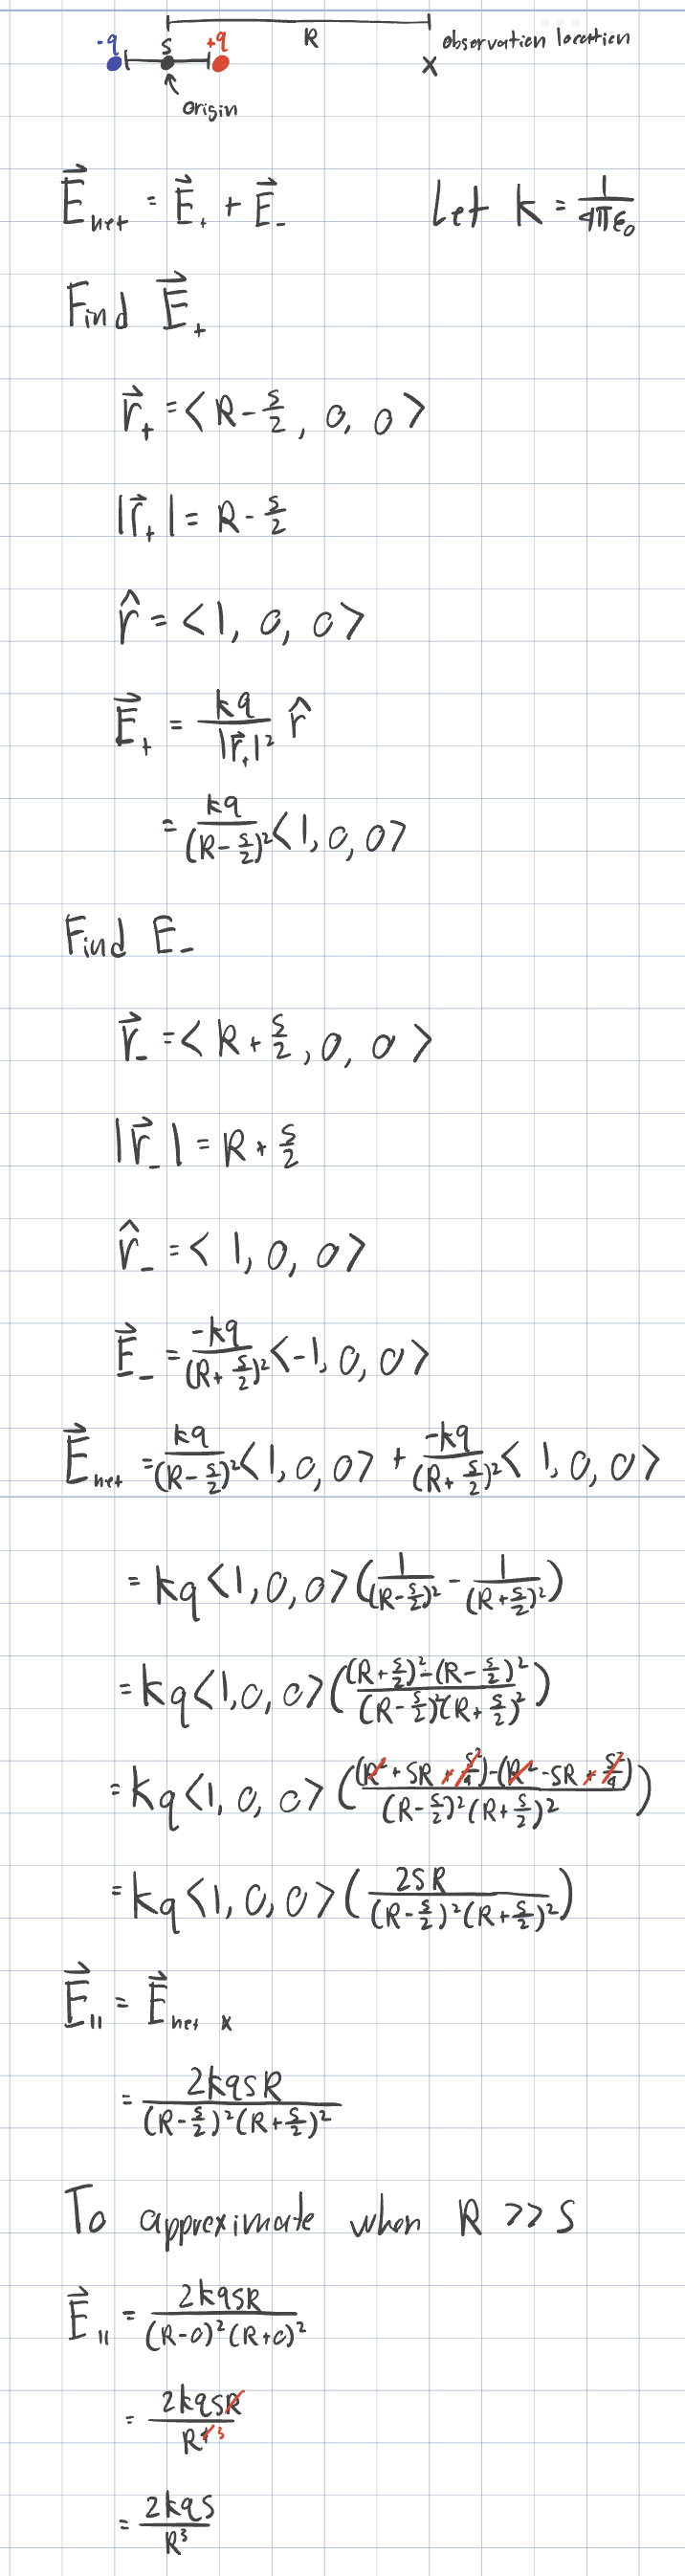 R
-q s +q observation location
x
origin
\vec{E}_{net} = \vec{E}_+ + \vec{E}_- Let k = \frac{1}{4πε_0}
Find \vec{E}_+
\vec{r}_+ = <R - \frac{s}{2}, 0, 0>
|\vec{r}_+| = R - \frac{s}{2}
\hat{r} = <1, 0, 0>
\vec{E}_+ = \frac{kq}{|\vec{r}_+|^2} \hat{r}
= \frac{kq}{(R - \frac{s}{2})^2} <1, 0, 0>
Find E_-
\vec{r}_- = <R + \frac{s}{2}, 0, 0>
|\vec{r}_-| = R + \frac{s}{2}
\hat{r}_- = <1, 0, 0>
\vec{E}_- = \frac{-kq}{(R + \frac{s}{2})^2} <-1, 0, 0>
\vec{E}_{net} = \frac{kq}{(R - \frac{s}{2})^2} <1, 0, 0> + \frac{-kq}{(R + \frac{s}{2})^2} <1, 0, 0>
= kq <1, 0, 0> (\frac{1}{(R - \frac{s}{2})^2} - \frac{1}{(R + \frac{s}{2})^2})
= kq <1, 0, 0> (\frac{(R + \frac{s}{2})^2 - (R - \frac{s}{2})^2}{(R - \frac{s}{2})^2 (R + \frac{s}{2})^2})
= kq <1, 0, 0> (\frac{(R^2 + sR + \frac{s^2}{4}) - (R^2 - sR + \frac{s^2}{4})}{(R - \frac{s}{2})^2 (R + \frac{s}{2})^2})
= kq <1, 0, 0> (\frac{2sR}{(R - \frac{s}{2})^2 (R + \frac{s}{2})^2})
\vec{E}_{||} = \vec{E}_{net x}
= \frac{2kqsR}{(R - \frac{s}{2})^2 (R + \frac{s}{2})^2}
To approximate when R >> s
\vec{E}_{||} = \frac{2kqsR}{(R-0)^2 (R+0)^2}
= \frac{2kqsR}{R^{4 3}}
= \frac{2kqs}{R^3}